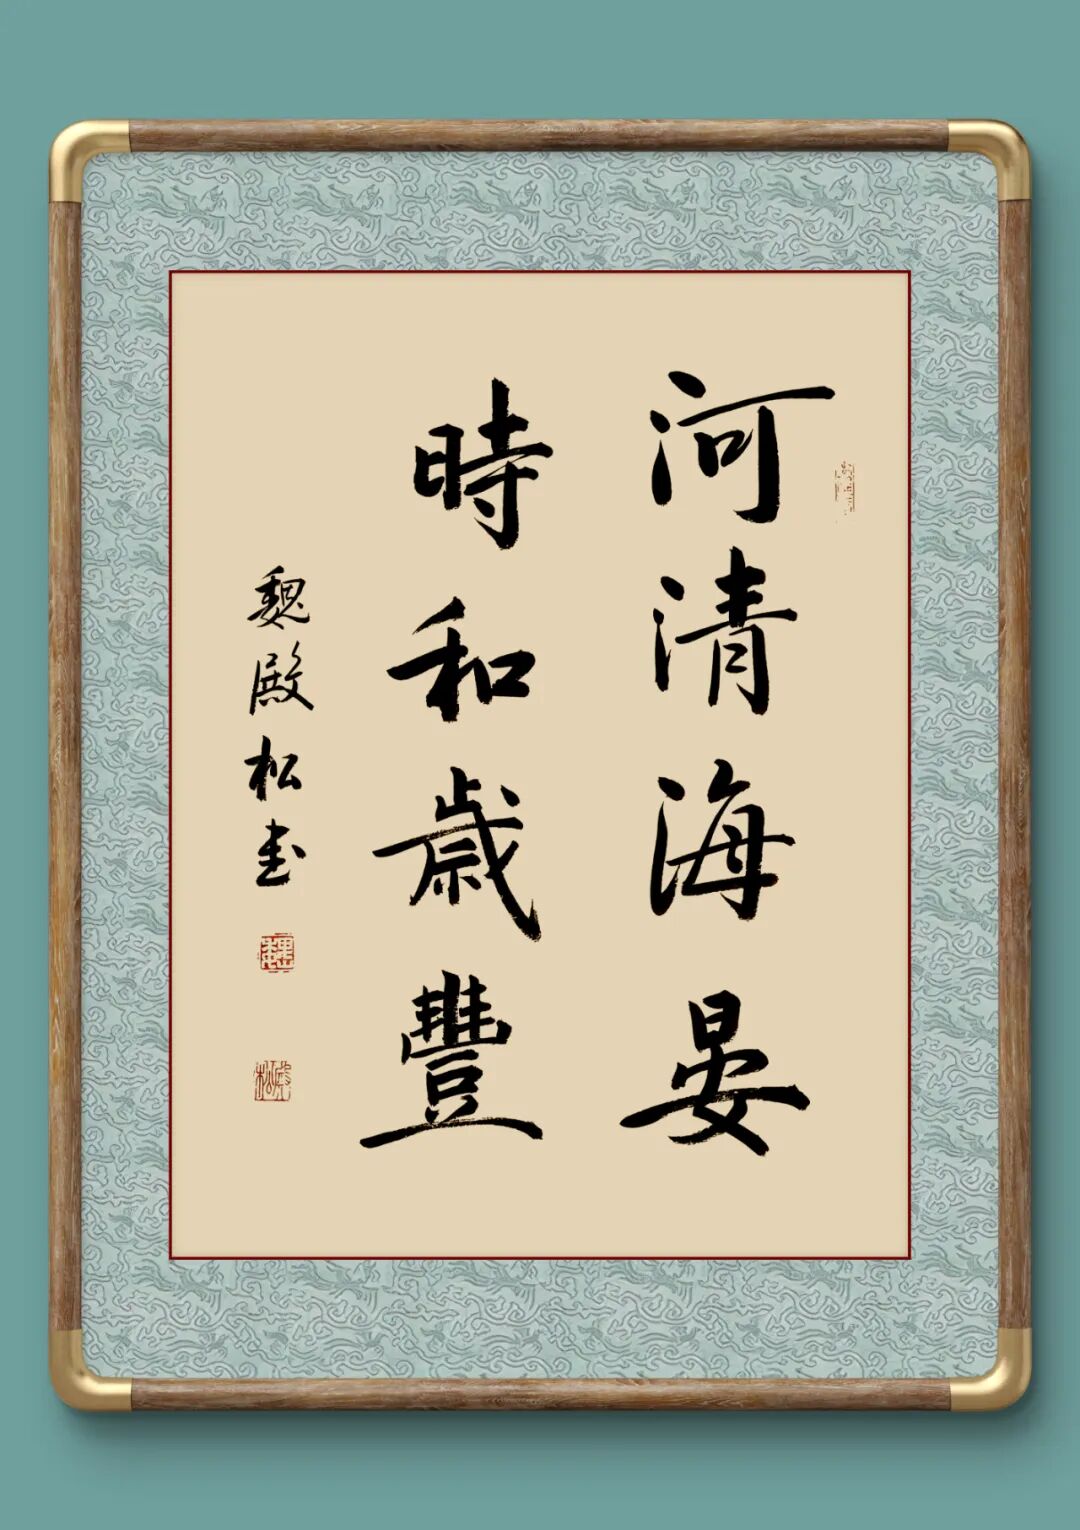 河清海晏
時和歲豐
魏殿松书